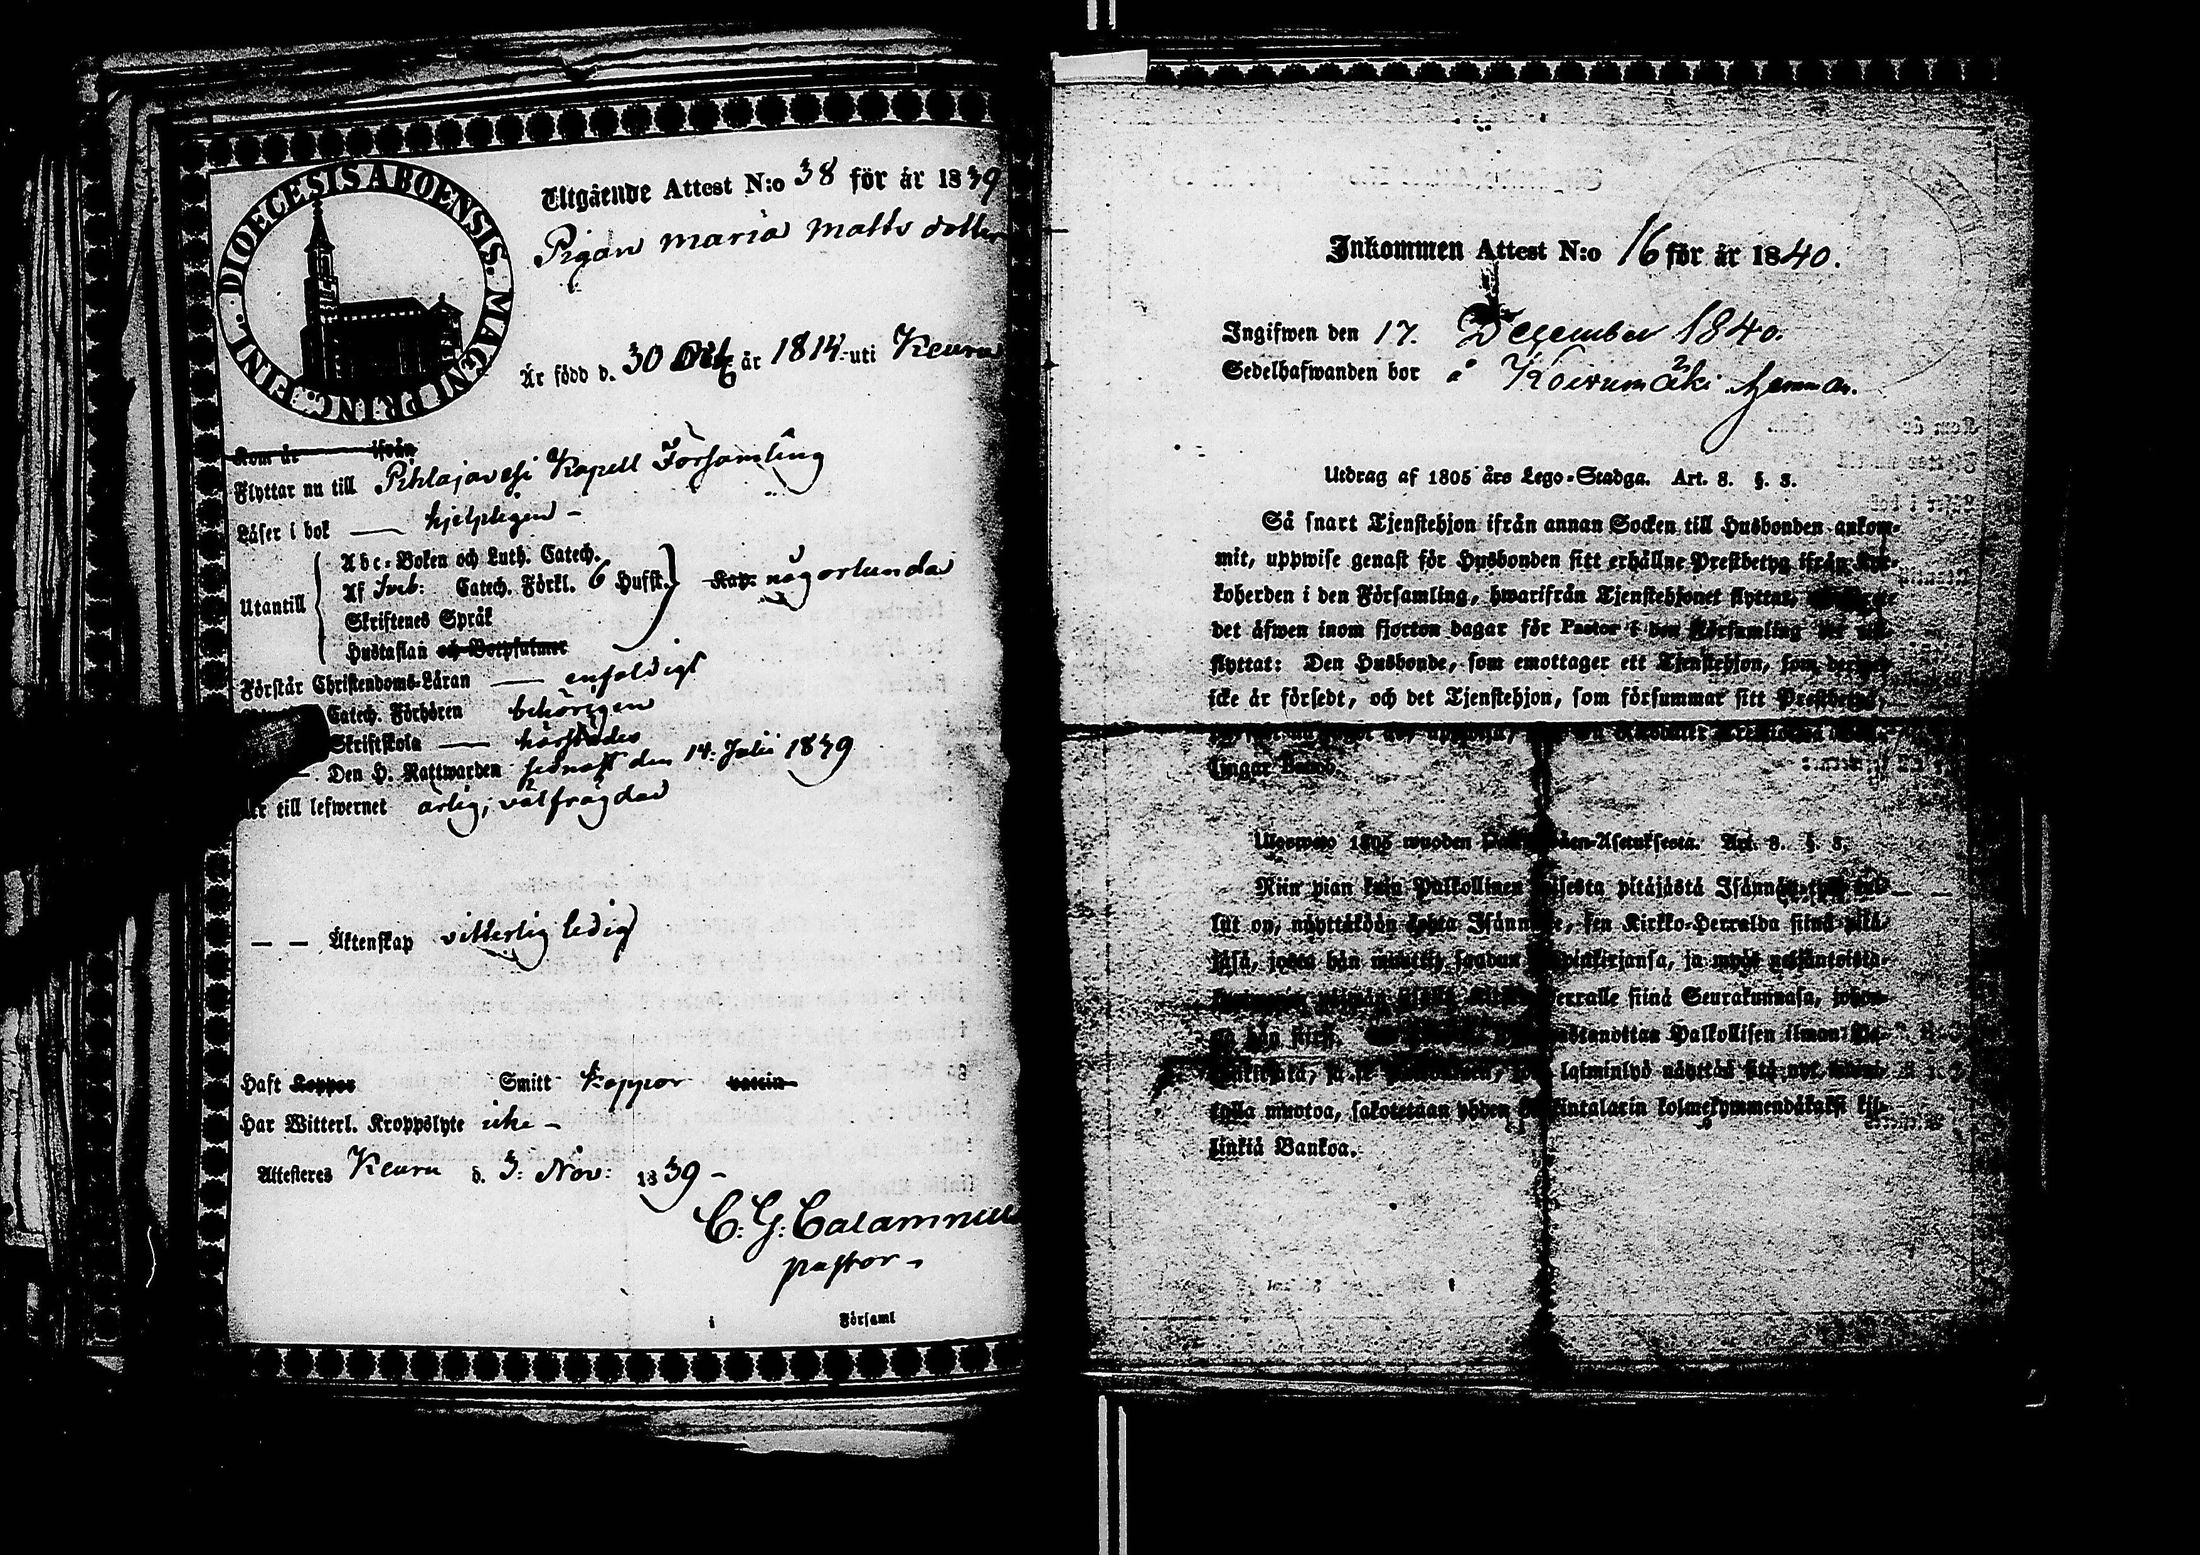 DIOECESIS ABOENSIS. MAGNI PRINC. FINL.
Utgående Attest N:o 38 för år 1839
Pigan Maria Matts dotter
Är född d. 30 Oct år 1814 uti Keuru
Kom år ifrån
Flyttar nu till Pihlajavesi Kapell Församling
Läser i bok — hjelpligen –
Utantill
Abc-Boken och Luth. Catech.
Af Sveb: Catech. Förkl. 6 Hufst. Kap: någorlunda
Skriftenes Språk
Hustaflan och Botpsalmer
Förstår Christendoms-Läran — enfaldigt
Catech. Förhören behörigen
Skriftskola —
Den H. Nattwarden senast den 14: Julii 1839
till lefwernet ärlig, välfrägdad
— — Äktenskap vitterlig ledig
Haft Koppor Smitt koppor vaccin
Har Witterl. Kroppslyte icke –
Attesteres Keuru d. 3: Nov: 1839 –
C. G. Calamnius
pastor –
i Församl
Inkommen Attest N:o 16 för år 1840.
Ingifwen den 17. December 1840.
Sedelhafwanden bor å Koirumäki hemman.
Utdrag af 1805 års Lego-Stadga. Art. 8. §. 3.
Så snart Tjenstehjon ifrån annan Socken till Husbonden ankom-
mit, uppwise genast för Husbonden sitt erhållne Prestbetyg ifrån Kyr-
koherden i den Församling, hwarifrån Tjenstehjonet flyttat,
det äfwen inom fjorton dagar för Pastor i den Församling
flyttat: Den Husbonde, som emottager ett Tjenstehjon, som
icke är försedt, och det Tjenstehjon, som försummar sitt Prestbetyg
lingar Banco.
Ulosweto 1805 wuoden Asetuksesta. Art. 8. §. 3.
Niin pian kuin Palkollinen pitäjästä Isännän
lut on, näyttäkään kohta, sen Kirkko-Herralda siinä pitä-
jäsä, josta hän, ja myös
siinä Seurakunnasa,
Palkollisen ilman
laiminlyö näyttää sitä
muotoa, sakotetaan yhden kolmekymmendäkaksi kil-
linkiä Bankoa.